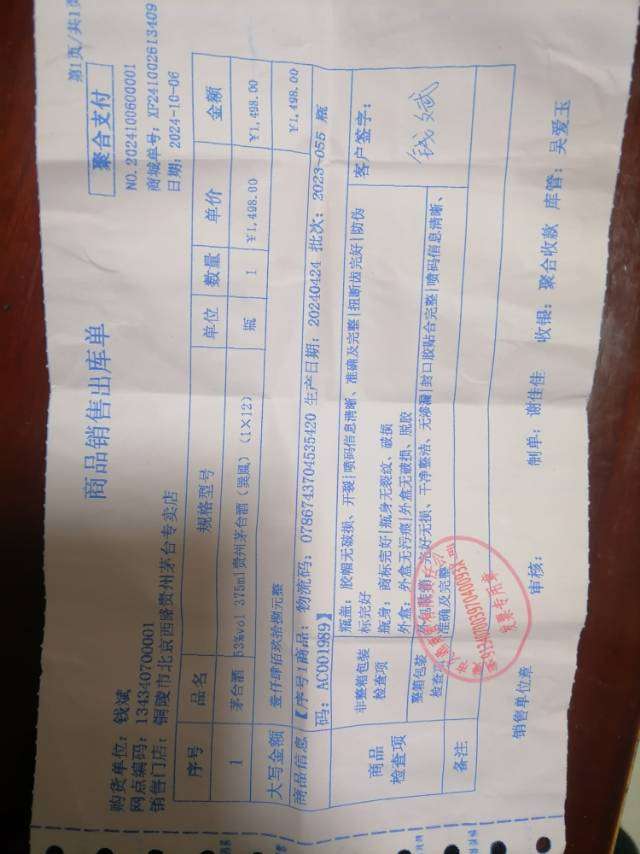 第1页/共1页
商品销售出库单
聚合支付
NO.2024100600001
商城单号：XF241002613409
日期：2024-10-06
购货单位：钱斌
网点编码：134340700001
销售门店：铜陵市北京西路贵州茅台专卖店
序号 品名 规格型号 单位 数量 单价 金额
1 茅台酒 53%vol 375ml贵州茅台酒（巽風）（1×12） 瓶 1 ¥1,498.00 ¥1,498.00
大写金额 壹仟肆佰玖拾捌元整 ¥1,498.00
商品信息【序号1商品：物流码：07867437045354​20 生产日期：20240424 批次：2023-055 瓶
码：AC001989】
商品
检查项
非整箱包装
检查项
瓶盖：胶帽无破损、开裂|喷码信息清晰、准确及完整|扭断齿完好|防伪
标完好
瓶身：商标完好|瓶身无裂纹、破损
外盒：外盒无污痕|外盒无破损、脱胶
整箱包装
检查项
完好无损、干净整洁、无渗漏|封口胶贴合完整|喷码信息清晰、
准确及完整
客户签字：
钱斌
备注
发票专用章
销售单位章 审核： 制单：谢佳佳 收银：聚合收款 库管：吴爱玉